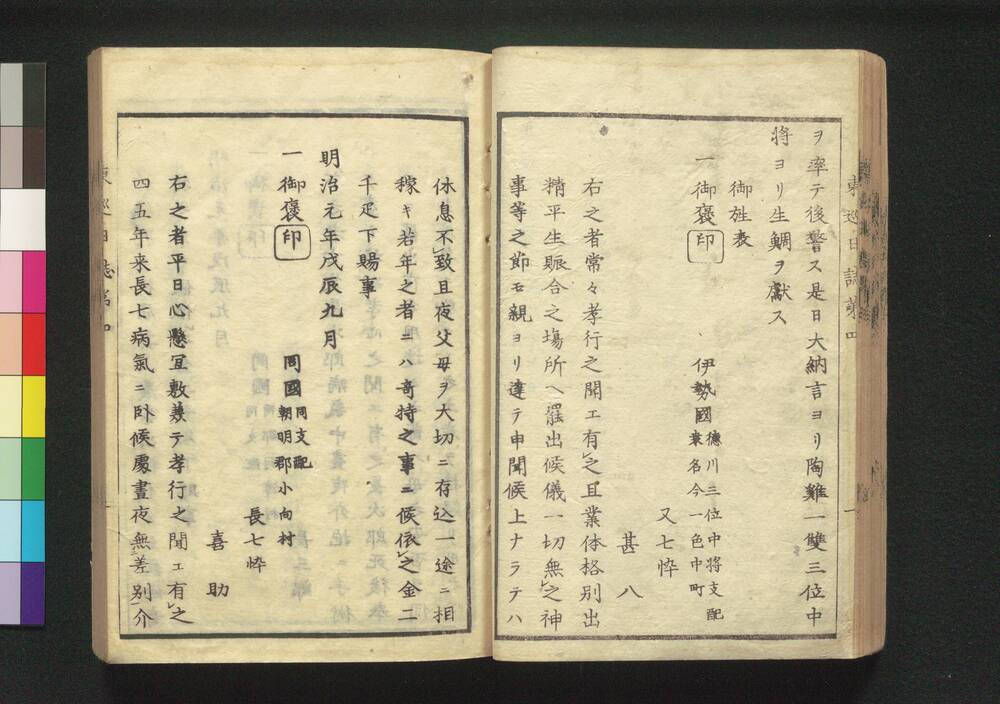 ヲ率テ後警ス是日大納言ヨリ陶雞一雙三位中
将ヨリ生鯛ヲ獻ス
御姓表
一御褒印
伊勢國徳川三位中将支配
桒名今一色中町
又七悴
甚八
右之者常々孝行之聞エ有之且業体格別出
精平生賑合之塲所ヘ罷出候儀一切無之神
事等之節モ親ヨリ達テ申聞候上ナラテハ
休息不致且夜父母ヲ大切ニ存込一途ニ相
稼キ若年之者ニハ奇持之事ニ候依之金二
千疋下賜事
明治元年戊辰九月
一御褒印
同國同支配
朝明郡小向村
長七悴
喜助
右之者平日心懸冝敷兼テ孝行之聞エ有之
四五年来長七病氣ニ卧候處晝夜無差别介
東巡日誌第四
一
東巡日誌第四
一